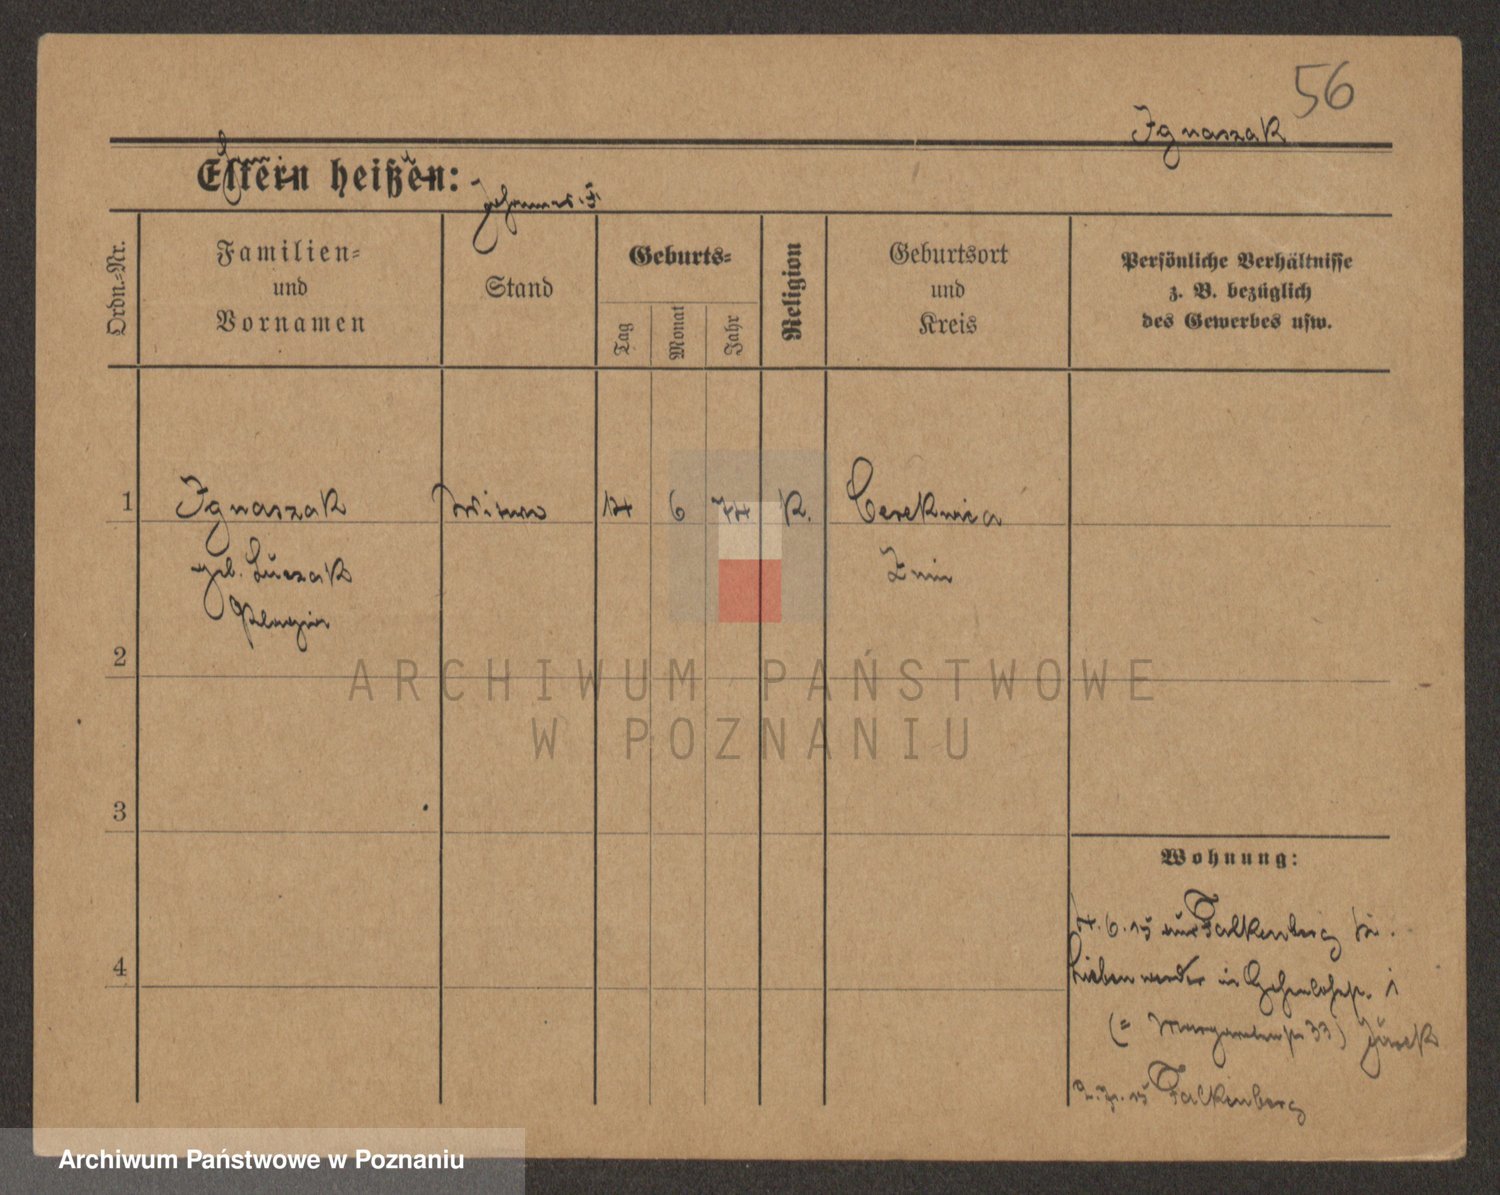 56
Ignaszak
Eltern heißen:
Johannes
Ordn.-Nr.
Familien-
und
Vornamen
Stand
Geburts-
Tag
Monat
Jahr
Religion
Geburtsort
und
Kreis
Persönliche Verhältnisse
z. B. bezüglich
des Gewerbes usw.
1
Ignaszak
Witwe
14
6
74
K.
Cerekwica
geb. Łuczak
Znin
Pelagia
2
ARCHIWUM PAŃSTWOWE
W POZNANIU
3
Wohnung:
6. 15 Falkenberg
4
in 1
33)
15 Falkenberg
Archiwum Państwowe w Poznaniu